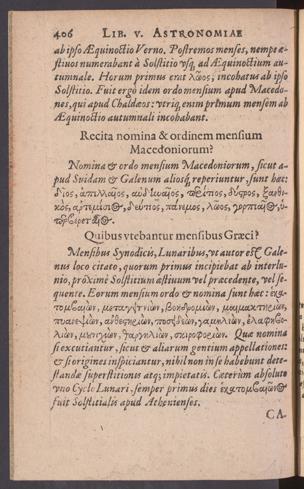 406 LIB. V. ASTRONOMIAE
ab ipso Æquinoctio Verno. Postremos menses, nempe æ-
stiuos numerabant à Solstitio vsq; ad Æquinoctium au-
tumnale. Horum primus erat λῶος, incohatus ab ipso
Solstitio. Fuit ergò idem ordo mensium apud Macedo-
nes, qui apud Chaldæos: vtriq; enim primum mensem ab
Æquinoctio autumnali incohabant.
Recita nomina & ordinem mensium
Macedoniorum?
Nomina & ordo mensium Macedoniorum, sicut a-
pud Suidam & Galenum aliosq; reperiuntur, sunt hæc:
δῖος, ἀπελλαῖος, αὐδυναῖος, περίτιος, δύστρος, ξανθι-
κὸς, ἀρτεμίσιος, δαίσιος, πάνεμος, λῶος, γορπιαῖος, ὑ-
περβερεταῖος.
Quibus vtebantur mensibus Græci?
Mensibus Synodicis, Lunaribus, vt autor est Gale-
nus loco citato, quorum primus incipiebat ab interlu-
nio, proximè Solstitium æstiuum vel præcedente, vel se-
quente. Eorum mensium ordo & nomina sunt hæc: ἑκα-
τομβαιὼν, μεταγειτνιὼν, βοηδρομιὼν, μαιμακτηριὼν,
πυανεψιὼν, ἀνθεστηριὼν, ποσειδεὼν, γαμηλιὼν, ἐλαφηβο-
λιὼν, μουνυχιὼν, θαργηλιὼν, σκιροφοριών. Quæ nomina
si excutiantur, sicut & aliarum gentium appellationes:
& si origines inspiciantur, nihil non in se habebunt dete-
standæ superstitionis atq; impietatis. Cæterùm absoluto
vno Cyclo Lunari, semper primus dies ἑκατομβαιῶνος
fuit Solstitialis apud Athenienses.
CA-